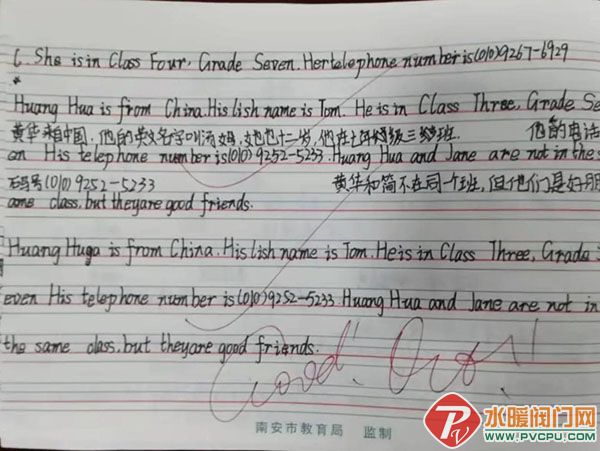 ( She is in Class Four, Grade Seven. Her telephone number is (010) 9267-6929
*
Huang Hua is from China. His lish name is Tom. He is in Class Three, Grade Se
黄华来自中国,他的英文名字叫汤姆,她也十二岁,他在七年级三班. 他的电话
en His telephone number is (010) 9252-5233. Huang Hua and Jane are not in the s
号(010) 9252-5233 黄华和简不在同一个班,但他们是好朋
ame class, but they are good friends.
Huang Huga is from China. His lish name is Tom. He is in Class Three, Grade S
even His telephone number is (010) 9252-5233. Huang Hua and Jane are not in
the same class, but they are good friends.
Good!
南安市教育局 监制
水暖阀门网
WWW.PVCPU.COM